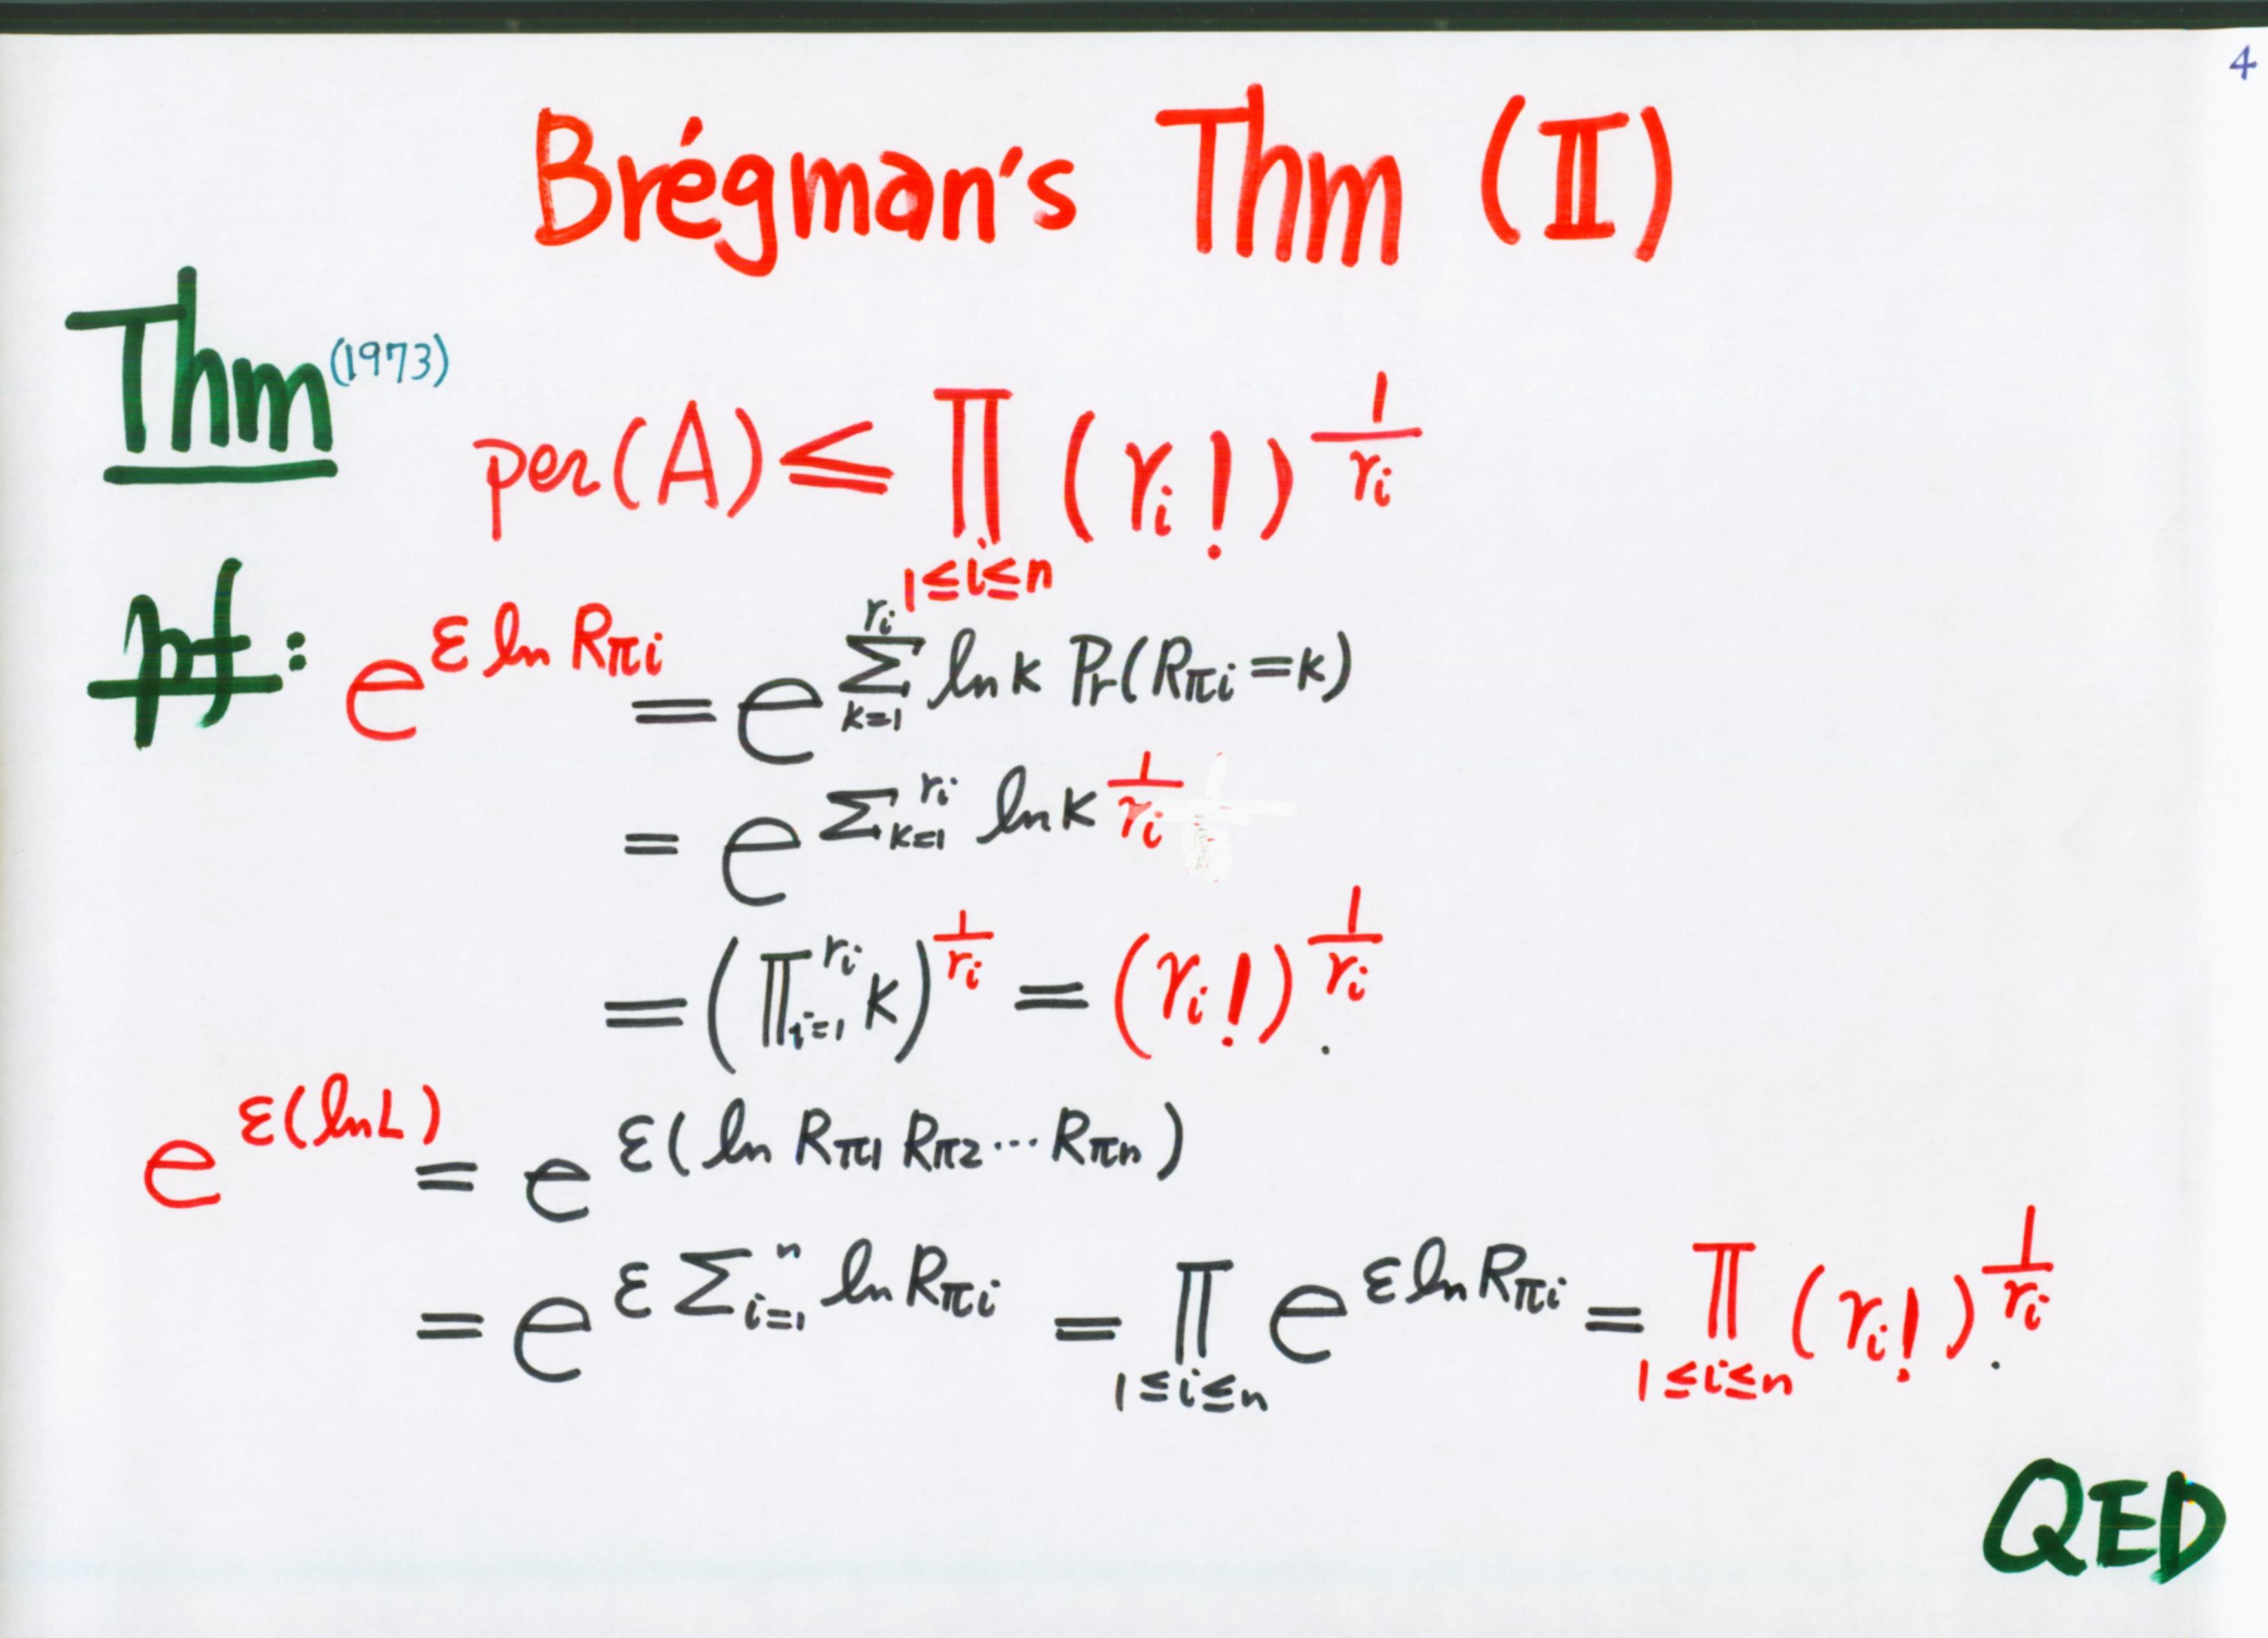 4
Brégman's Thm (II)
Thm (1973)
per(A) ≤ ∏_{1≤i≤n} (r_i!)^{1/r_i}
pf: e^{ε ln R_{πi}} = e^{∑_{k=1}^{r_i} ln k Pr(R_{πi}=k)}
= e^{∑_{k=1}^{r_i} ln k 1/r_i}
= (∏_{i=1}^{r_i} k)^{1/r_i} = (r_i!)^{1/r_i}.
e^{ε(ln L)} = e^{ε(ln R_{π1} R_{π2} ⋯ R_{πn})}
= e^{ε ∑_{i=1}^{n} ln R_{πi}} = ∏_{1≤i≤n} e^{ε ln R_{πi}} = ∏_{1≤i≤n} (r_i!)^{1/r_i}.
QED